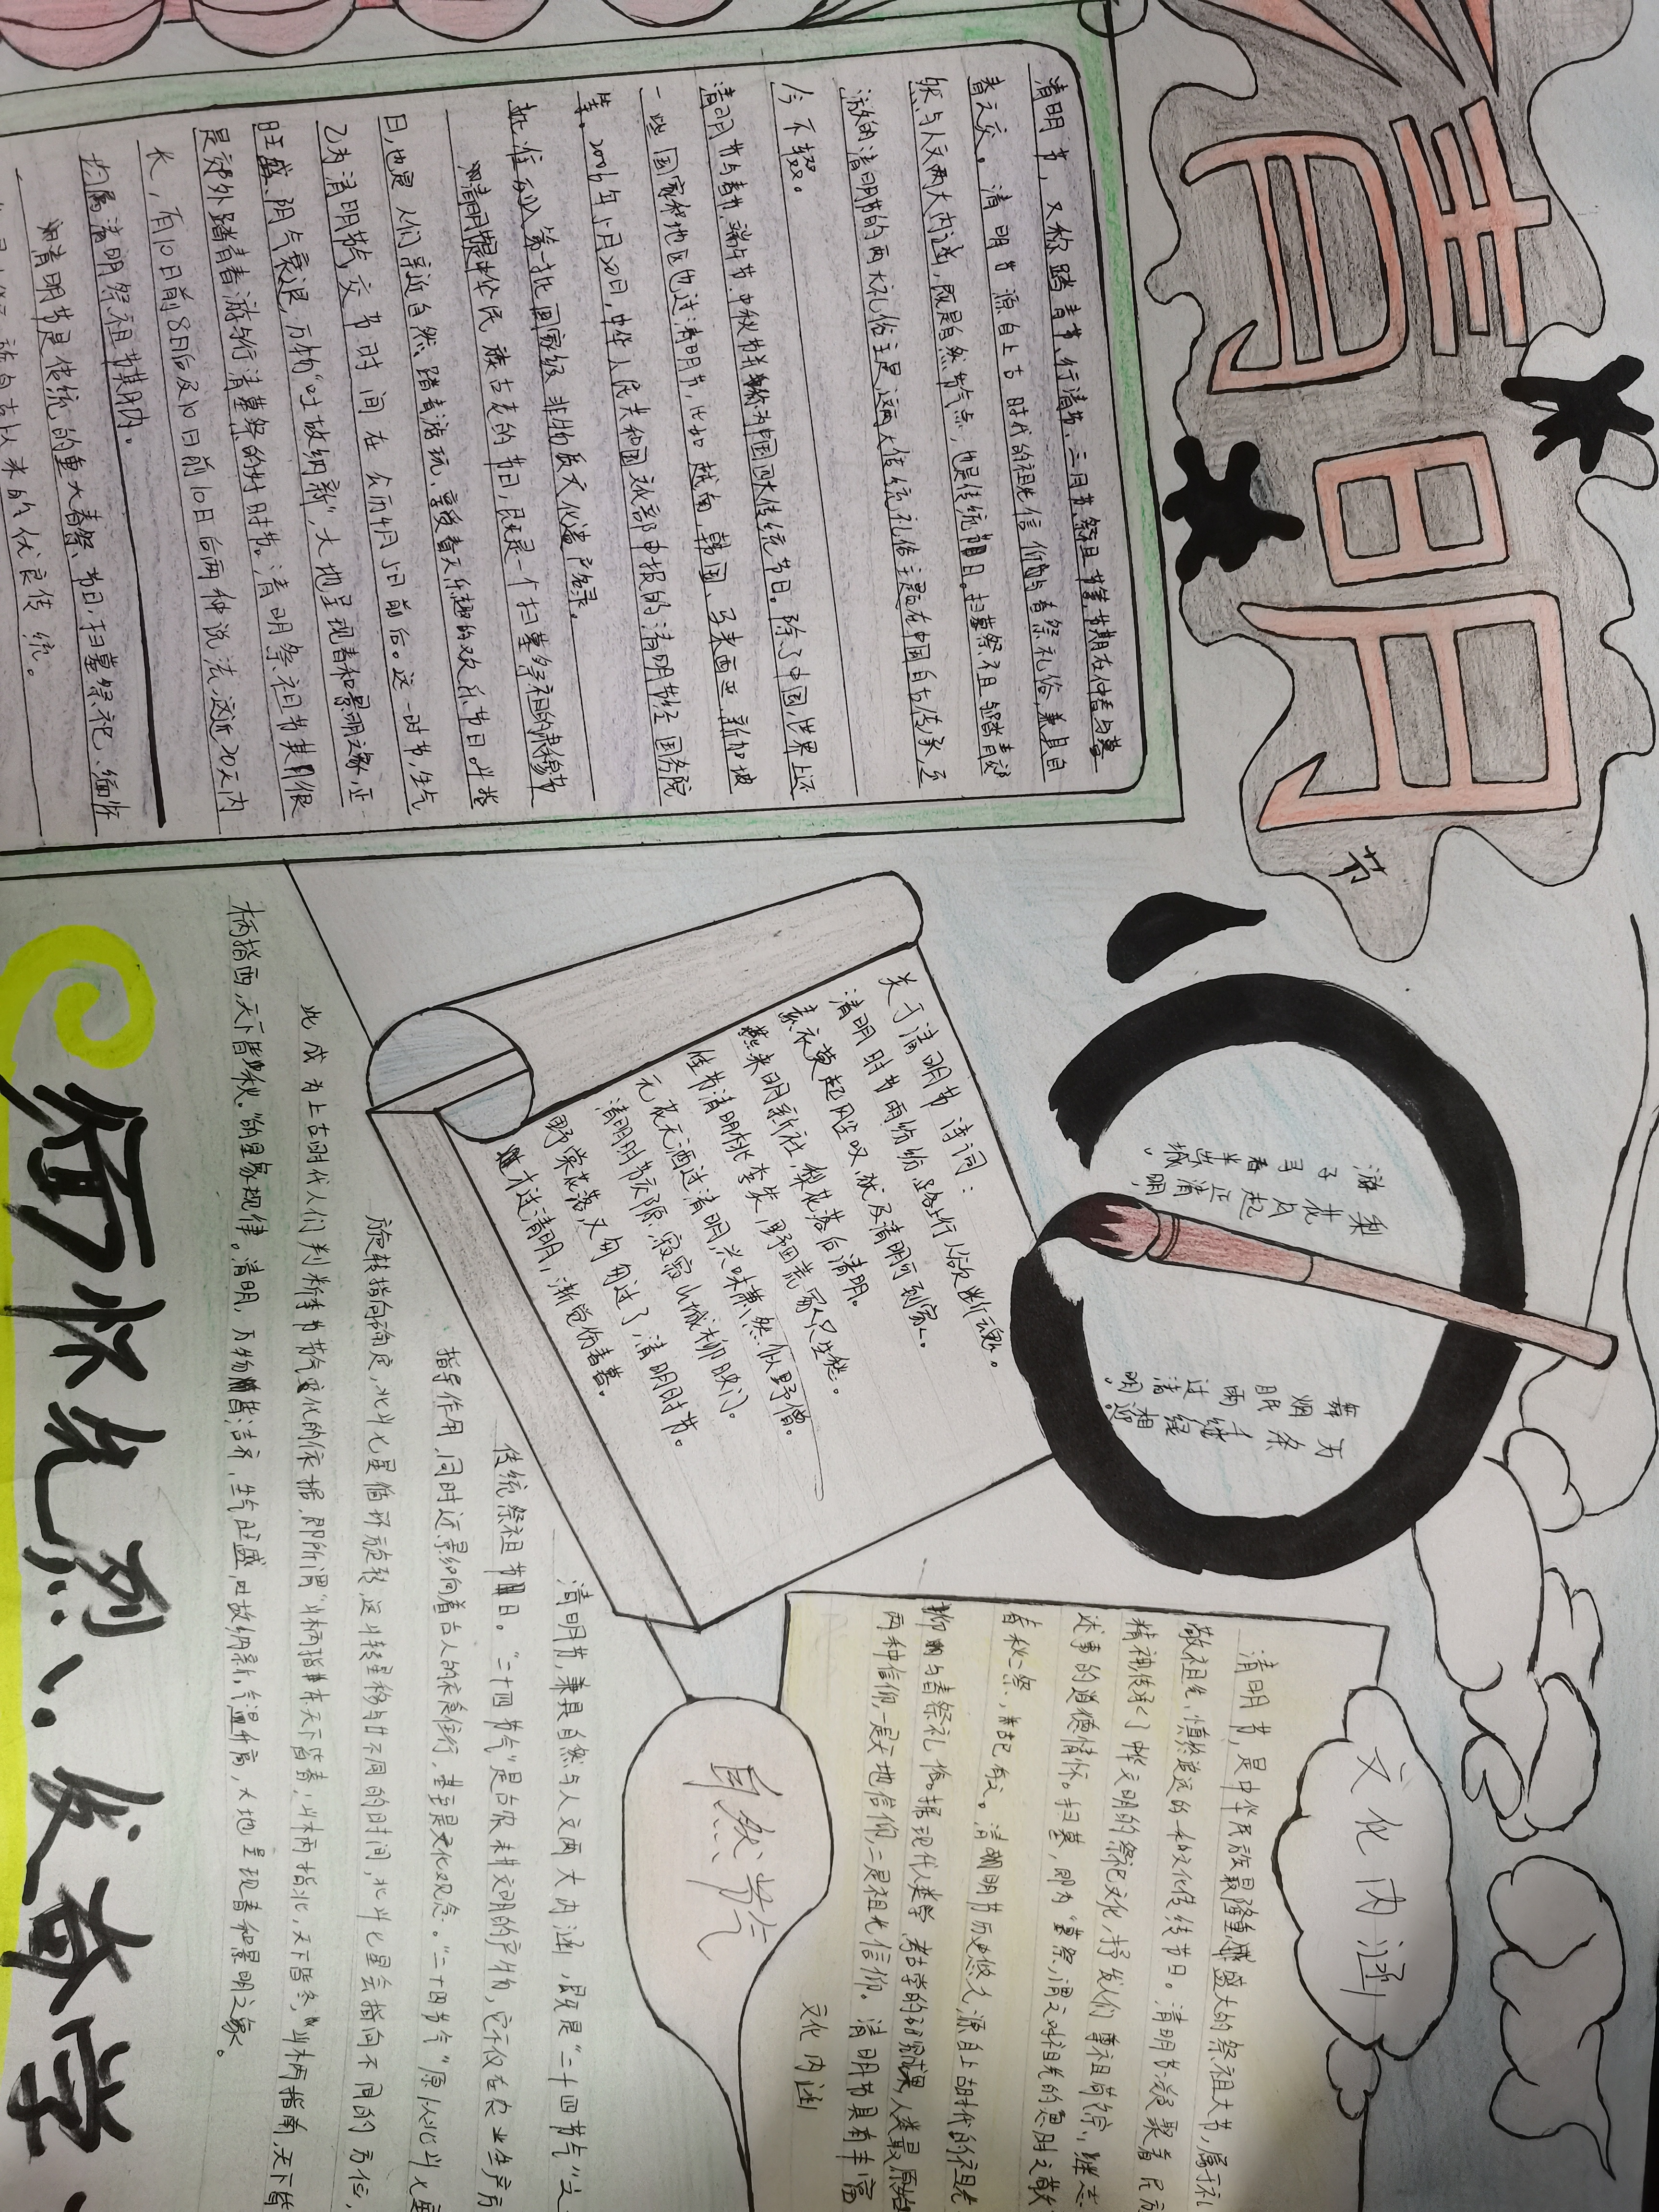 清明
节
清明节，又称踏青节、行清节、三月节、祭祖节等，节期在仲春与暮
春之交。清明节源自上古时代的祖先信仰与春祭礼俗，兼具自
然与人文两大内涵，既是自然节气点，也是传统节日。扫墓祭祖与踏青郊
游的清明节的两大礼俗主题，这两大传统礼俗主题在中国自古传承，至
今不辍。
清明节与春节、端午节、中秋节并称为中国四大传统节日。除了中国，世界上还
一些国家和地区也过清明节，比如越南、韩国、马来西亚、新加坡
等。2006年5月20日，中华人民共和国文化部申报的清明节经国务院
批准列入第一批国家级非物质文化遗产名录。
清明节是中华民族古老的节日，既是一个扫墓祭祖的肃穆节
日，也是人们亲近自然、踏青游玩、享受春天乐趣的欢乐节日。斗指
乙为清明节气，交节时间在公历4月5日前后。这一时节，生气
旺盛、阴气衰退，万物“吐故纳新”，大地呈现春和景明之象，正
是郊外踏青春游与行清墓祭的好时节。清明祭祖节其期很
长，有10日前8日后及10日前10日后两种说法，这近20天内
均属清明祭祖节其期内。
清明节是传统的重大春祭节日，扫墓祭祀、缅怀
关于清明节诗词：
清明时节雨纷纷，路上行人欲断魂。
素衣莫起风尘叹，犹及清明可到家。
燕来明新社，梨花落后清明。
佳节清明桃李笑，野田荒冢只生愁。
无花无酒过清明，兴味萧然似野僧。
清明时节寂寥，寂寂山城柳映门。
野棠花落，又匆匆过了，清明时节。
才过清明，渐觉伤春暮。
梨花风起正清明
游子寻春半出城。
万条千缕绿相迎。
舞烟眠雨过清明。
文化内涵
清明节，是中华民族最隆重盛大的祭祖大节，属于礼
敬祖先、慎终追远的一种文化传统节日。清明节凝聚着民族
精神，传承了中华文明的祭祀文化，抒发人们尊祖敬宗、继志
述事的道德情怀。扫墓，即为“墓祭”，谓之对祖先的“思时之敬”
春秋二祭，古已有之。清明节历史悠久，源自上古时代的祖先
信仰与春祭礼俗。据现代人类学、考古学的研究成果，人类最原始
两种信仰，一是天地信仰，二是祖先信仰。清明节具有丰富
文化内涵
自然节气
清明节，兼具自然与人文两大内涵，既是“二十四节气”之
传统祭祖节日。“二十四节气”是古农耕文明的产物，它不仅在农业生产方
指导作用，同时还影响着古人的衣食住行，甚至是文化观念。“二十四节气”原依北斗七星
旋转指向确定，北斗七星循环旋转，这斗转星移与不同的时间，北斗七星会指向不同的方位，
此成为上古时代人们判断季节节气变化的依据，即所谓“斗柄指东，天下皆春；斗柄指北，天下皆冬，斗柄指南，天下皆
柄指西，天下皆秋。”的星象规律。清明，万物皆洁齐，生气旺盛，吐故纳新，气温升高，大地呈现春和景明之象。
缅怀先烈：发奋学